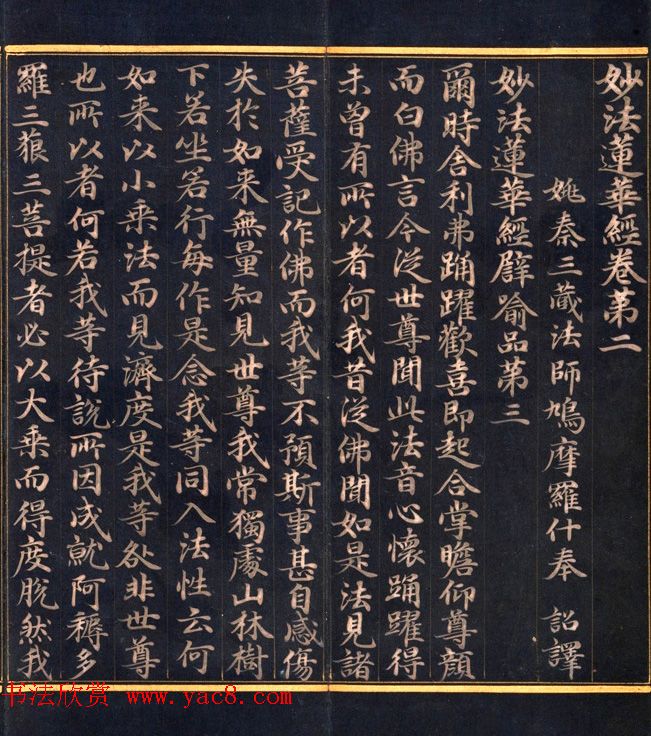 妙法蓮華經卷第二
姚秦三藏法師鳩摩羅什奉 詔譯
妙法蓮華經譬喻品第三
爾時舍利弗踊躍歡喜即起合掌瞻仰尊顏
而白佛言今從世尊聞此法音心懷踊躍得
未曾有所以者何我昔從佛聞如是法見諸
菩薩受記作佛而我等不預斯事甚自感傷
失於如來無量知見世尊我常獨處山林樹
下若坐若行每作是念我等同入法性云何
如来以小乘法而見濟度是我等咎非世尊
也所以者何若我等待說所因成就阿耨多
羅三藐三菩提者必以大乘而得度脫然我
书法欣赏 www.yac8.com